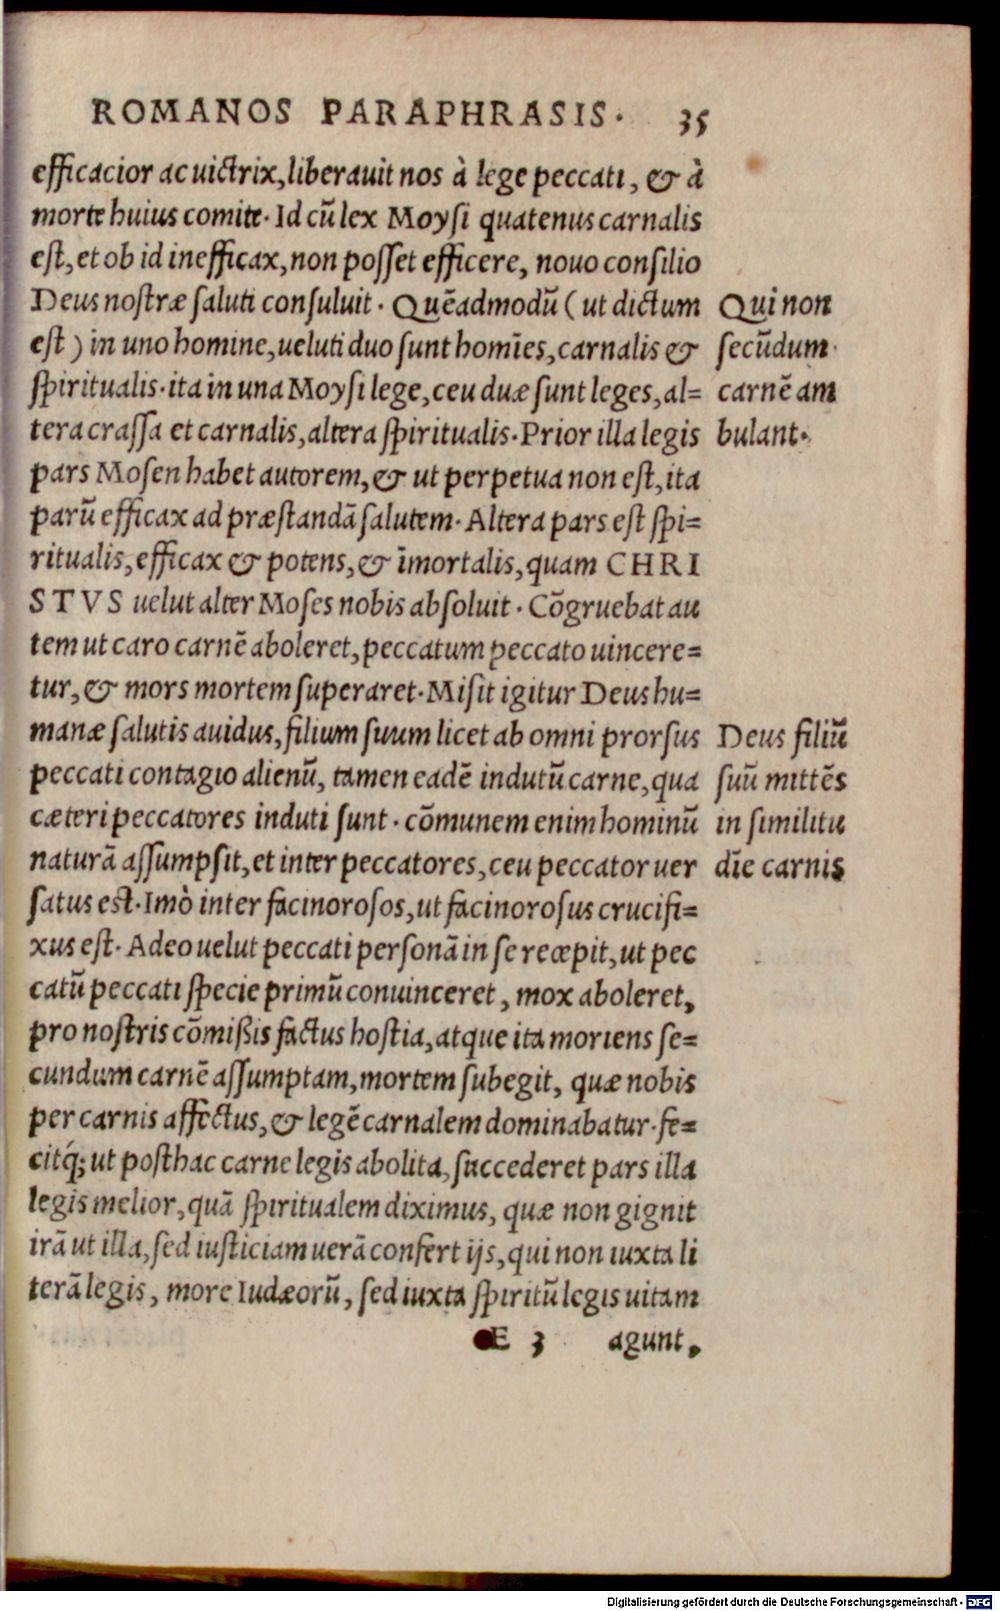 ROMANOS PARAPHRASIS. 35
efficacior ac uictrix, liberauit nos à lege peccati, & à
morte huius comite. Id cũ lex Moysi quatenus carnalis
est, et ob id inefficax, non posset efficere, nouo consilio
Deus nostræ saluti consuluit. Quẽadmodũ ( ut dictum
est ) in uno homine, ueluti duo sunt homĩes, carnalis &
spiritualis. ita in una Moysi lege, ceu duæ sunt leges, al=
tera crassa et carnalis, altera spiritualis. Prior illa legis
pars Mosen habet autorem, & ut perpetua non est, ita
parũ efficax ad præstandã salutem. Altera pars est spi=
ritualis, efficax & potens, & ĩmortalis, quam CHRI
STVS uelut alter Moses nobis absoluit. Cõgruebat au
tem ut caro carnẽ aboleret, peccatum peccato uincere=
tur, & mors mortem superaret. Misit igitur Deus hu=
manæ salutis auidus, filium suum licet ab omni prorsus
peccati contagio alienũ, tamen eadẽ indutũ carne, qua
cæteri peccatores induti sunt. cõmunem enim hominũ
naturã assumpsit, et inter peccatores, ceu peccator uer
satus est. Imò inter facinorosos, ut facinorosus crucifi=
xus est. Adeo uelut peccati personã in se recepit, ut pec
catũ peccati specie primũ conuinceret, mox aboleret,
pro nostris cõmißis factus hostia, atque ita moriens se=
cundum carnẽ assumptam, mortem subegit, quæ nobis
per carnis affectus, & legẽ carnalem dominabatur. fe=
citq́; ut posthac carne legis abolita, succederet pars illa
legis melior, quã spiritualem diximus, quæ non gignit
irã ut illa, sed iusticiam uerã confert ijs, qui non iuxta li
terã legis, more Iudæorũ, sed iuxta spiritũ legis uitam
E 3 agunt,
Qui non
secũdum
carnẽ am
bulant.
Deus filiũ
suũ mittẽs
in similitu
dĩe carnis
Digitalisierung gefördert durch die Deutsche Forschungsgemeinschaft - DFG